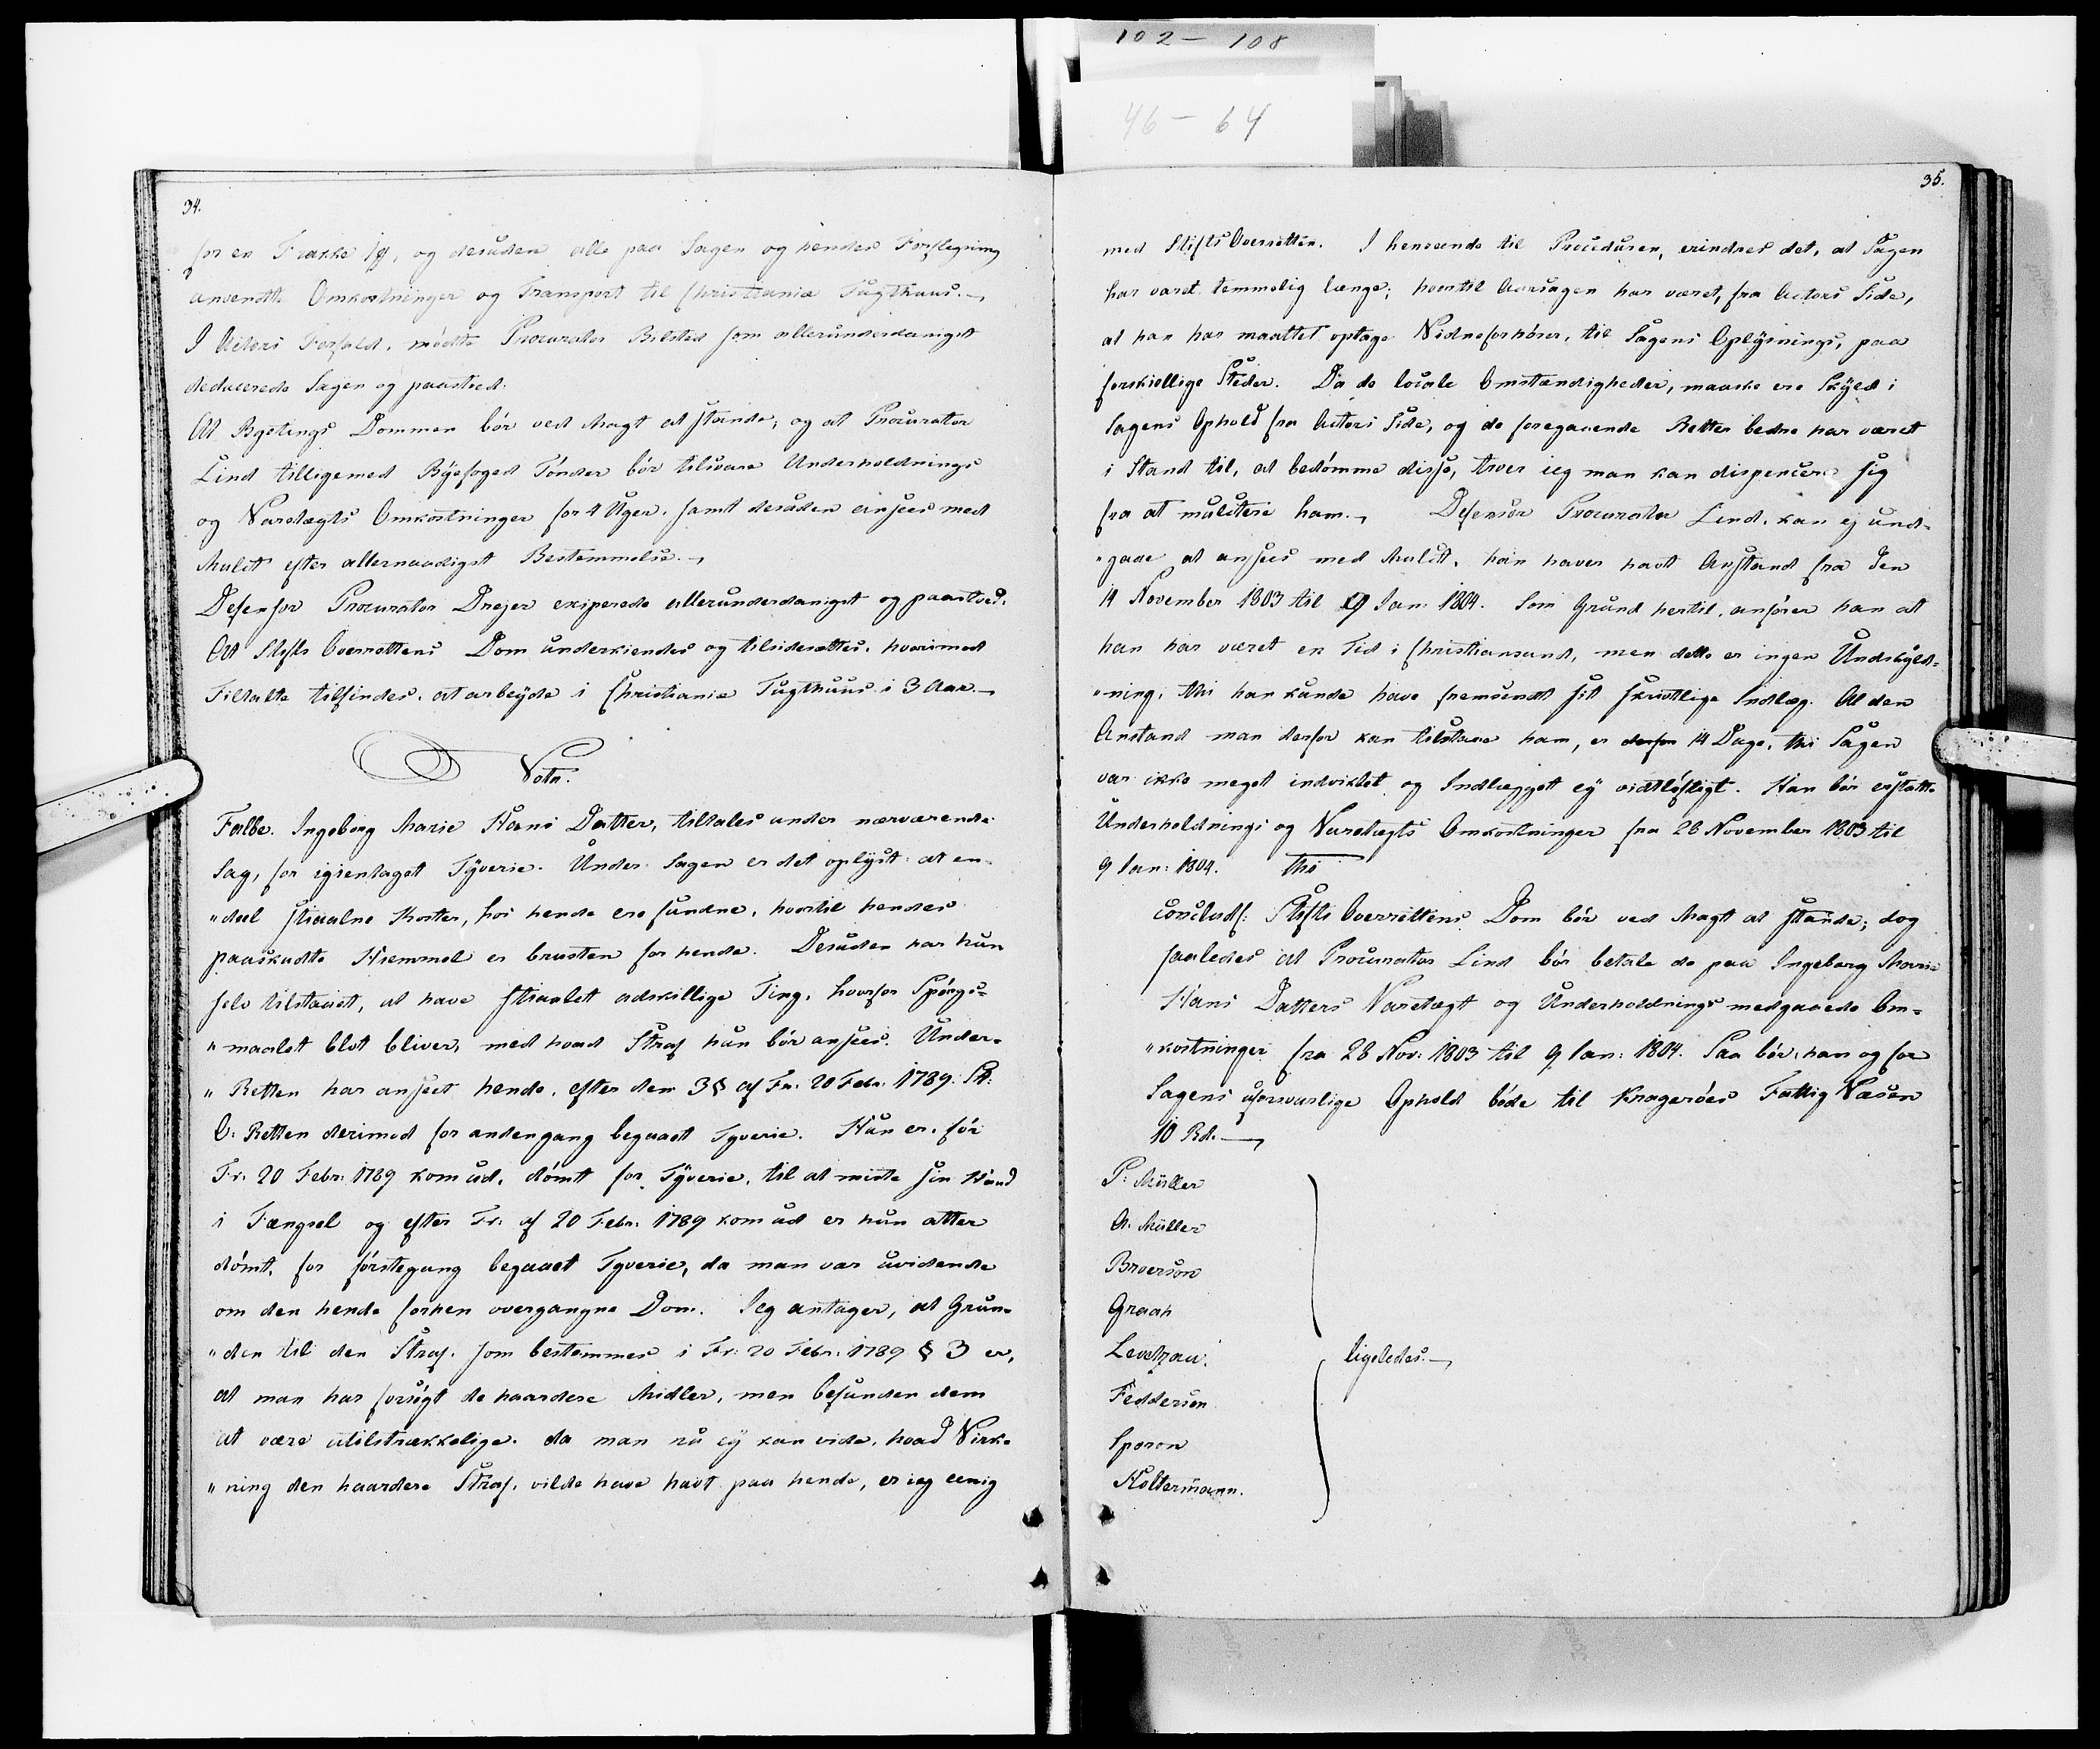 102 - 108
46 - 64
34.
for en Frakke 1 , og desuden alle paa Sagen og hendes Forflegning
anvendte Omkostninger og Transport til Christiania Tugthuus.
I Actors Forfald, mødte Procurator Bilsted som allerunderdanigst
deducerede Sagen og paastod:
At Byetings Dommen bør ved Magt at stande, og at Procurator
Lind tilligemed Byefoged Tønder bør tilsvare Underholdnings
og Varetægts Omkostninger for 4 Uger. samt desuden ansees med
Mulct efter allernaadigst Bestemmelse.
Defensor Procurator Drejer exiperede allerunderdanigst og paastod.
At Stifts Overrettens Dom underkiendes og tilsidesættes, hvorimod
Tiltalte tilfindes, at arbeyde i Christiania Tugthuus i 3 Aar.
Vota.
Falbe. Ingeborg Marie Hans Datter, tiltales under nærværende
Sag, for igientaget Tyverie. Under Sagen er det oplyst at en-
"deel stiaalne Koster, hos hende ere fundne, hvortil hendes
paaskudte Hiemmel er brusten for hende. Desuden har hun
selv tilstaaet, at have stiaalet adskillige Ting, hvorfor Spørgs-
"maalet blot bliver, med hvad Straf hun bør ansees. Under-
"Retten har anseet hende, efter den 3 § af Fr. 20 Febr. 1789. St:
O: Retten derimod for andengang begaaet Tyverie. Hun er, før
Fr: 20 Febr: 1789 kom ud, dømt for Tyverie, til at miste sin Hud
i Fængsel og efter Fr: af 20 Febr: 1789 kom ud er hun atter
dømt, for førstegang begaaet Tyverie, da man var uvidende
om den hende forhen overgangne Dom. Jeg antager, at Grun-
"den til den Straf, som bestemmes i Fr: 20 Febr: 1789 § 3 er,
at man har forsøgt de haardere Midler, men befunden dem
at være utilstrækkelige. da man nu ey kan vide, hvad Virk-
"ning den haardere Straf, vilde have havt paa hende, er ieg eenig
35.
med Stifts Overretten. I henseende til Proceduren, erindres det, at Sagen
har varet temmelig længe; hvortil Aarsagen har været, fra Actors Side,
at han har maattet optage Vidneforhører, til Sagens Oplysnings, paa
forskiellige Steder. Da de locale Omstændigheder, maaske ere Skyld i
Sagens Ophold fra Actors Side, og de foregaaende Retter bedre har været
i Stand til, at bedømme disse, troer ieg man kan dispencere sig
fra at mulctere ham. Defensor Procurator Lind, kan ej und-
"gaae at ansees med Mulct, han haver havt Anstand fra den
14 November 1803 til 9 Jan: 1804. Som Grund hertil, anfører han at
han har været en Tid i Christiansand, men dette er ingen Undskyld-
"ning; thi han kunde have fremsendt sit skriftlige Indlæg. Al den
Anstand man derfor kan tilstaae ham, er derfor 14 Dage, thi Sagen
var ikke meget indviklet og Indlægget ey vidtløftigt. Han bør erstatte
Underholdnings og Varetægts Omkostninger fra 28 November 1803 til
9 Jan: 1804. Thi
concluds: Stifts Overrettens Dom bør ved Magt at stande; dog
saaledes at Procurator Lind bør betale de paa Ingeborg Marie
Hans Datters Varetægt og Underholdnings medgaaede Om-
"kostninger fra 28 Nov: 1803 til 9 Jan: 1804. Saa bør han og for
Sagens uforsvarlige Ophold bøde til Kragerøes Fattig Væsen
10 Rd.
P: Müller
A. Müller
Broerson
Graah
Levetzau.
ligeledes.
Feddersen
Sporon
Koltermann.